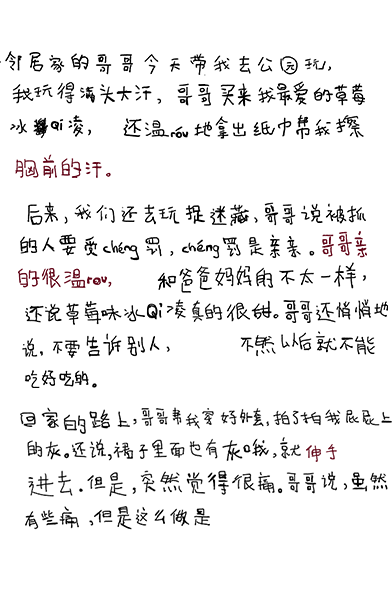 邻居家的哥哥今天带我去公园玩,
我玩得满头大汗，哥哥买来我最爱的草莓
冰Qi凌， 还温róu地拿出纸巾帮我擦
胸前的汗。
后来,我们还去玩捉迷藏,哥哥说被抓
的人要受chéng罚,chéng罚是亲亲。哥哥亲
的很温rou, 和爸爸妈妈的不太一样,
还说草莓味冰Qi凌真的很甜。哥哥还悄悄地
说,不要告诉别人, 不然以后就不能
吃好吃的。
回家的路上,哥哥帮我穿好外套,拍了拍我屁屁上
的灰。还说,裙子里面也有灰哦,就伸手
进去.但是,突然觉得很痛。哥哥说,虽然
有些痛,但是这么做是